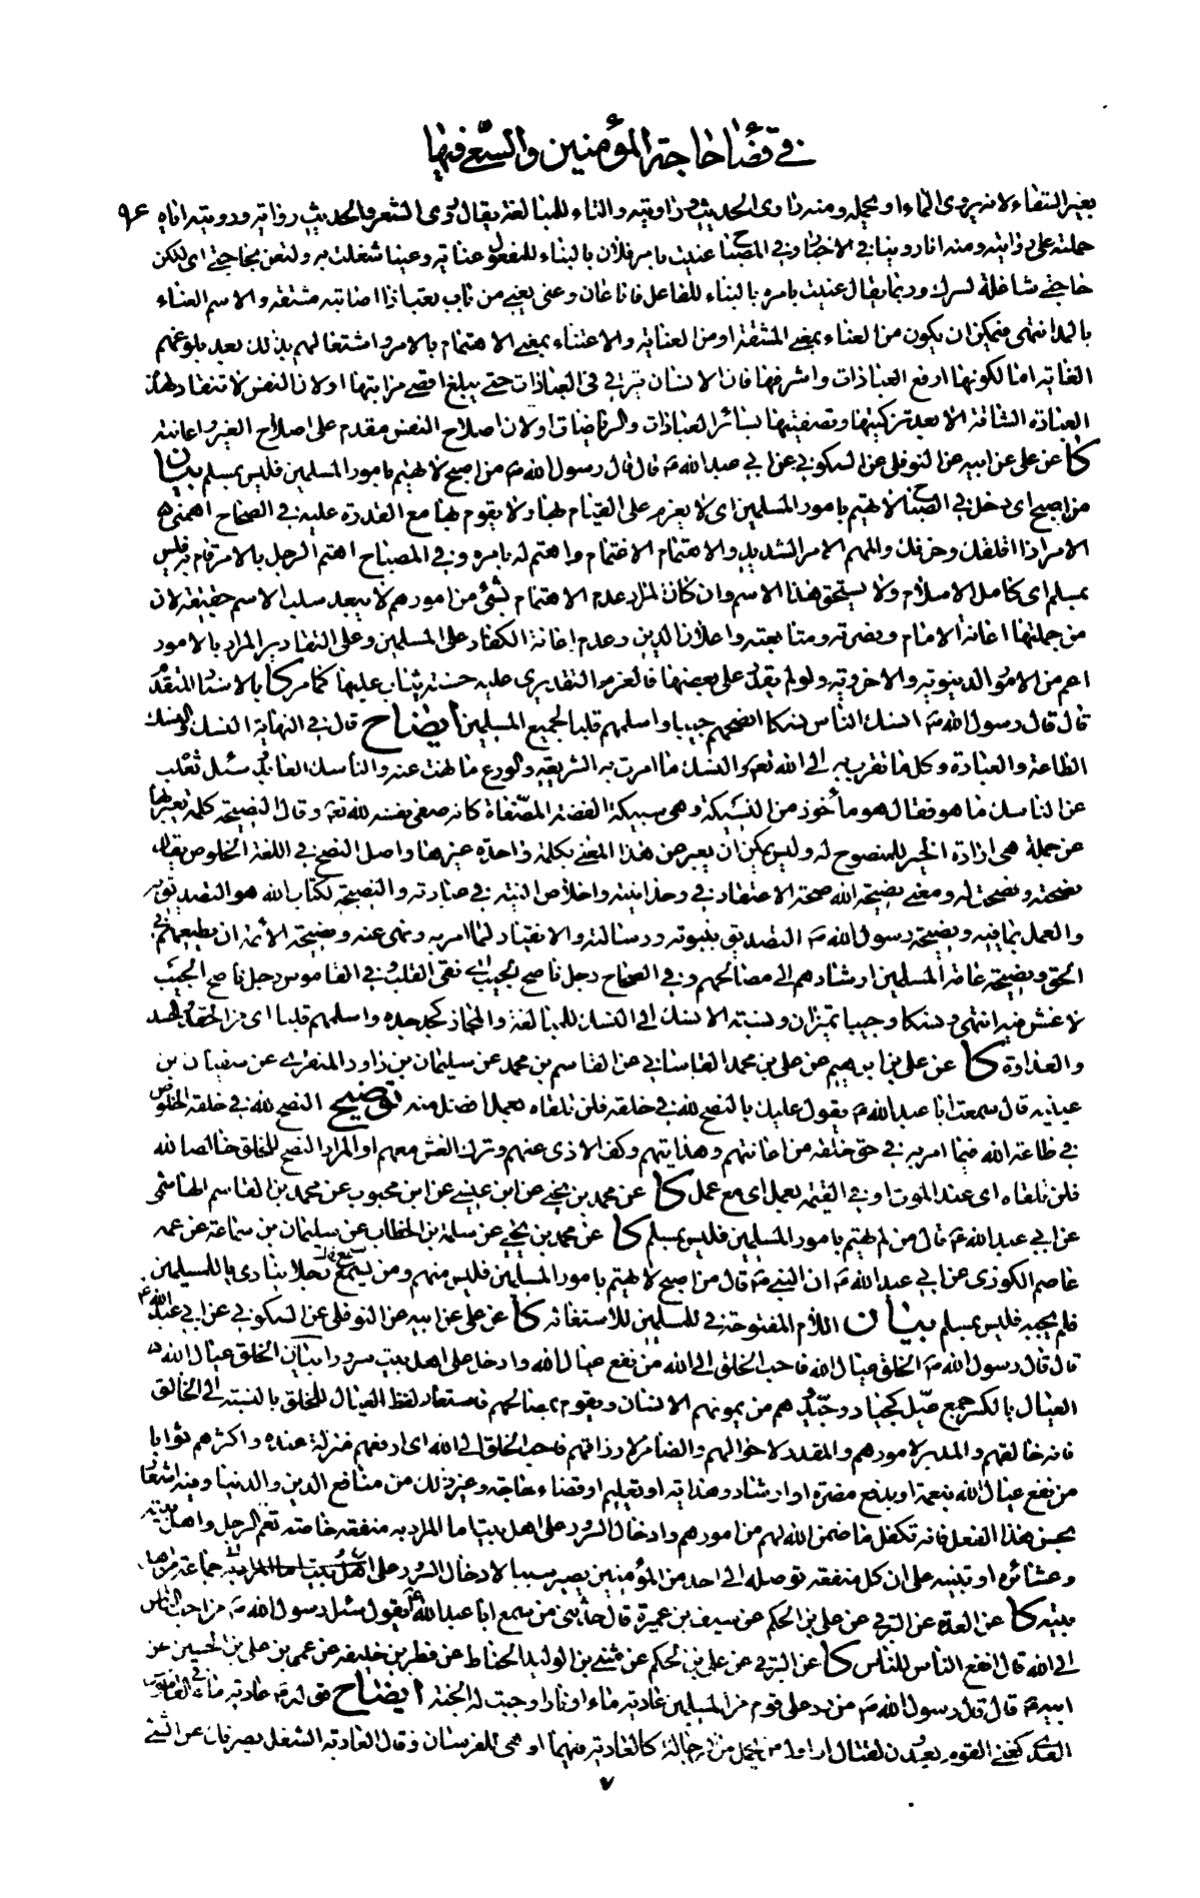 في قضاء حاجة المؤمنين والسعي فيها
بغير التقاء لانه يروى الماء او يحمله ومنه راوى الحديث وراويته والتاء للمبالغة يقال روى الشعر والحديث رواية ورويته اياه ٩٤
حملته على روايته ومنه انا روينا في الاخبار وفي المصباح عنيت بامر فلان بالبناء للمفعول عناية وعنيا شغلت به ولتعن بحاجتي اى لتكن
حاجتي شاغلة لسرك وربما يقال عنيت بامره بالبناء للفاعل فانا عان وعنى يعنى من باب تعب اذا اصابته مشقة والاسم العناء
بالمد انتهى فيمكن ان يكون من العناء بمعنى المشقة او من العناية والاعتناء بمعنى الاهتمام بالامر واشتغالهم بذلك بعد بلوغهم
الغاية اما لكونها ارفع العبادات واشرفها فان الانسان يترقى في العبادات حتى يبلغ اقصى مراتبها او لان النفس لا تنقاد لهذه
العبادة الشاقة الا بعد تزكيتها وتصفيتها بسائر العبادات والرياضات او لان اصلاح النفس مقدم على اصلاح الغير واعانته
كا عن على عن ابيه عن النوفلى عن السكوني عن ابي عبد الله ع قال قال رسول الله ص من اصبح لا يهتم بامور المسلمين فليس بمسلم بيان
من اصبح اى دخل في الصباح لا يهتم بامور المسلمين اى لا يعزم على القيام بها ولا يقوم بها مع القدرة عليه في الصحاح اهمنى
الامر اذا اقلقك وحزنك والمهم الامر الشديد والاهتمام الاغتمام واهتم له بامره وفي المصباح اهتم الرجل بالامر قام به فليس
بمسلم اى كامل الاسلام ولا يستحق هذا الاسم وان كان المراد عدم الاهتمام بشئ من امورهم لا يبعد سلب الاسم حقيقة لان
من جملتها اعانة الامام ونصرته ومتابعته واعلان الدين وعدم اعانة الكفار على المسلمين وعلى التقادير المراد بالامور
اعم من الامور الدنيوية والاخروية ولو لم يقدر على بعضها فالعزم التقديرى عليه حسنة يثاب عليها كما مر كا بالاسناد المتقدم
قال قال رسول الله ص انسك الناس نسكا انصحهم جيبا واسلمهم قلبا لجميع المسلمين ايضاح قال في النهاية النسك والنسك
الطاعة والعبادة وكل ما تقرب به الى الله تعالى والنسك ما امرت به الشريعة والورع ما نهت عنه والناسك العابد وسئل ثعلب
عن الناسك ما هو فقال هو مأخوذ من النسيكة وهى سبيكة الفضة المصفاة كانه صفى نفسه لله تعالى وقال النصيحة كلمة يعبر بها
عن جملة هى ارادة الخير للمنصوح له وليس يمكن ان يعبر عن هذا المعنى بكلمة واحدة غيرها واصل النصح في اللغة الخلوص يقال
نصحته ونصحت له ومعنى نصيحة الله صحة الاعتقاد في وحدانيته واخلاص النية في عبادته والنصيحة لكتاب الله هو التصديق به
والعمل بما فيه ونصيحة رسول الله ص التصديق بنبوته ورسالته والانقياد لما امر به ونهى عنه ونصيحة الائمة ان يطيعهم في
الحق ونصيحة عامة المسلمين ارشادهم الى مصالحهم وفي الصحاح رجل ناصح الجيب اى نقى القلب وفي القاموس رجل ناصح الجيب
لا غش فيه انتهى ونسكا وجيبا تميزان ونسبة الانسك الى النسك للمبالغة والمجاز كجد جده واسلمهم قلبا اى من الحقد والحسد
والعداوة كا عن على بن ابرهيم عن على بن محمد القاساني عن القاسم بن محمد عن سليمان بن داود المنقرى عن سفيان بن
عيينة قال سمعت ابا عبد الله ع يقول عليك بالنصح لله في خلقه فلن تلقاه بعمل افضل منه توضيح النصح لله في خلقه الخلوص
في طاعة الله فيما امر به في حق خلقه من اعانتهم وهدايتهم وكف الاذى عنهم وترك الغش معهم او المراد النصح للخلق خالصا لله
فلن تلقاه اى عند الموت او في القيمة بعمل اى مع عمل كا عن محمد بن يحيى عن ابن عيسى عن ابن محبوب عن محمد بن القاسم الهاشمى
عن ابي عبد الله ع قال من لم يهتم بامور المسلمين فليس بمسلم كا عن محمد بن يحيى عن سلمة بن الخطاب عن سليمان بن سماعة عن عمه
عاصم الكوزى عن ابي عبد الله ع ان النبي ص قال من اصبح لا يهتم بامور المسلمين فليس منهم ومن يسمع رجلا ينادى يا للمسلمين
فلم يجبه فليس بمسلم بيان اللام المفتوحة في للمسلمين للاستغاثة كا عن على عن ابيه عن النوفلى عن السكوني عن ابي عبد الله ع
قال قال رسول الله ص الخلق عيال الله فاحب الخلق الى الله من نفع عيال الله وادخل على اهل بيت سرورا بيان الخلق عيال الله
العيال بالكسر جمع عيل كجياد وجيد هم من يمونهم الانسان ويقوم بمصالحهم فاستعار لفظ العيال للخلق بالنسبة الى الخالق
فانه خالقهم والمدبر لامورهم والمقدر لاحوالهم والضامن لارزاقهم فاحب الخلق الى الله اى ارفعهم منزلة عنده واكثرهم ثوابا
من نفع عيال الله بنعمة او بدفع مضرة او ارشاد وهداية او تعليم او قضاء حاجة وغير ذلك من منافع الدين والدنيا وفيه اشعار
بحسن هذا الفعل فانه تكفل ما ضمن الله لهم من امورهم وادخال السرور على اهل بيت اما المراد به منفعة خاصة تعم الرجل واهل بيته
وعشائره او تنبيه على ان كل منفعة توصله الى احد من المؤمنين يصير سببا لادخال السرور على جماعة من اهل
بيته كا عن العدة عن البرقي عن على بن الحكم عن سيف بن عميرة قال حدثني من سمع ابا عبد الله ع يقول سئل رسول الله ص من احب الناس
الى الله قال انفع الناس للناس كا عن البرقي عن على بن الحكم عن مثنى بن الوليد الحناط عن فطر بن خليفة عن عمر بن على بن الحسين عن
ابيه ع قال قال رسول الله ص من رد على قوم من المسلمين عادية ماء او نار اوجبت له الجنة ايضاح قوله ع عادية ماء في القاموس
العدى كغنى القوم يعدون لقتال او اول من يحمل من الرجالة كالعادية فيهما او هى للفرسان وقال العادية الشغل يصرفك عن الشئ
٧